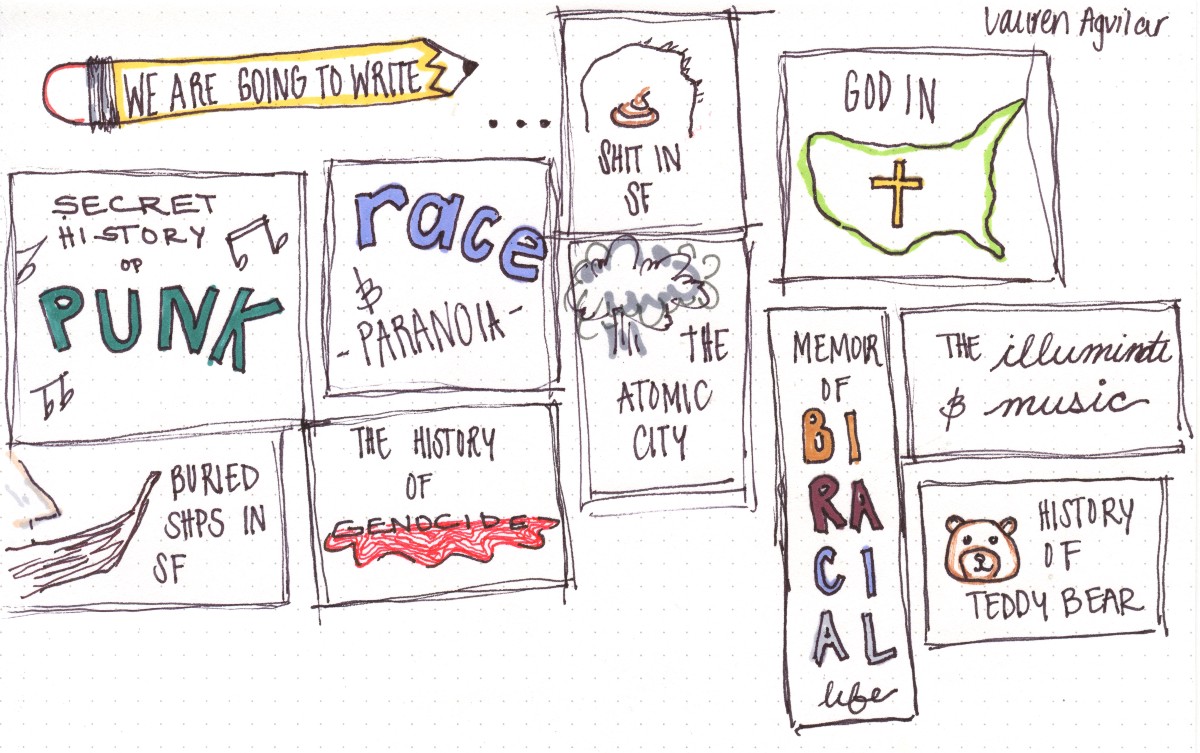 Lauren Aguilar
WE ARE GOING TO WRITE
...
SHIT IN
SF
GOD IN
SECRET
HISTORY
OF
PUNK
race
&
- PARANOIA -
THE
ATOMIC
CITY
MEMOIR
OF
BI
RA
CI
AL
life
THE illuminati
& music
BURIED
SHPS IN
SF
THE HISTORY
OF
GENOCIDE
HISTORY
OF
TEDDY BEAR